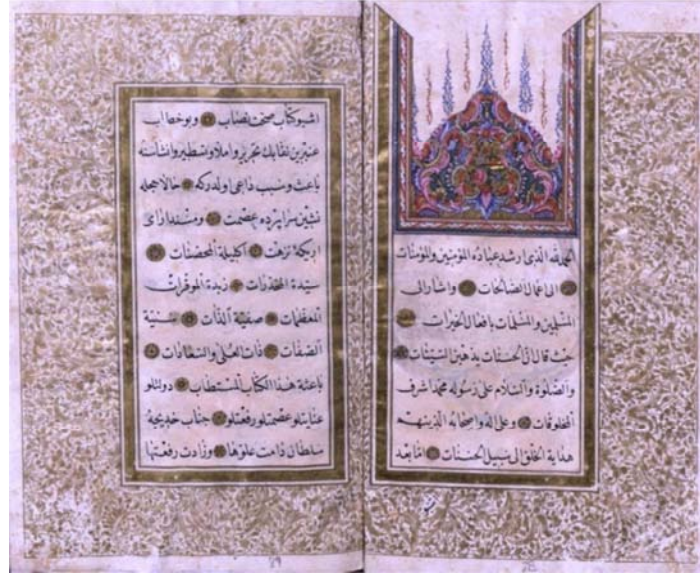 الحمد لله الذى ارشد عباده المؤمنين والمؤمنات
الى اعمال الصالحات واشار الى
المسلمين والمسلمات بافعال الخيرات
حيث قال ان الحسنات يذهبن السيئات
والصلوة والسلام على رسوله محمد اشرف
المخلوقات وعلى اله واصحابه الذينهم
هداية الخلق الى سبيل الحسنات اما بعد
اشبو كتاب صحت نصاب وبو خطاب
عنبرين نقابك تحرير واملا وتسطير وانشاسنه
باعث وسبب داعى اولدركه حالا حجله
نشين سراپرده عصمت ومسندآراى
اريكه نزهت اكليلة المحصنات
سيدة المخدرات زبدة الموقرات
المعظمات صفية الذات سنية
الصفات ذات العلى والسعادات
باعثة هذا الكتاب المستطاب دولتلو
عنايتلو عصمتلو رفعتلو جناب خديجه
سلطان دامت علوها وزادت رفعتها